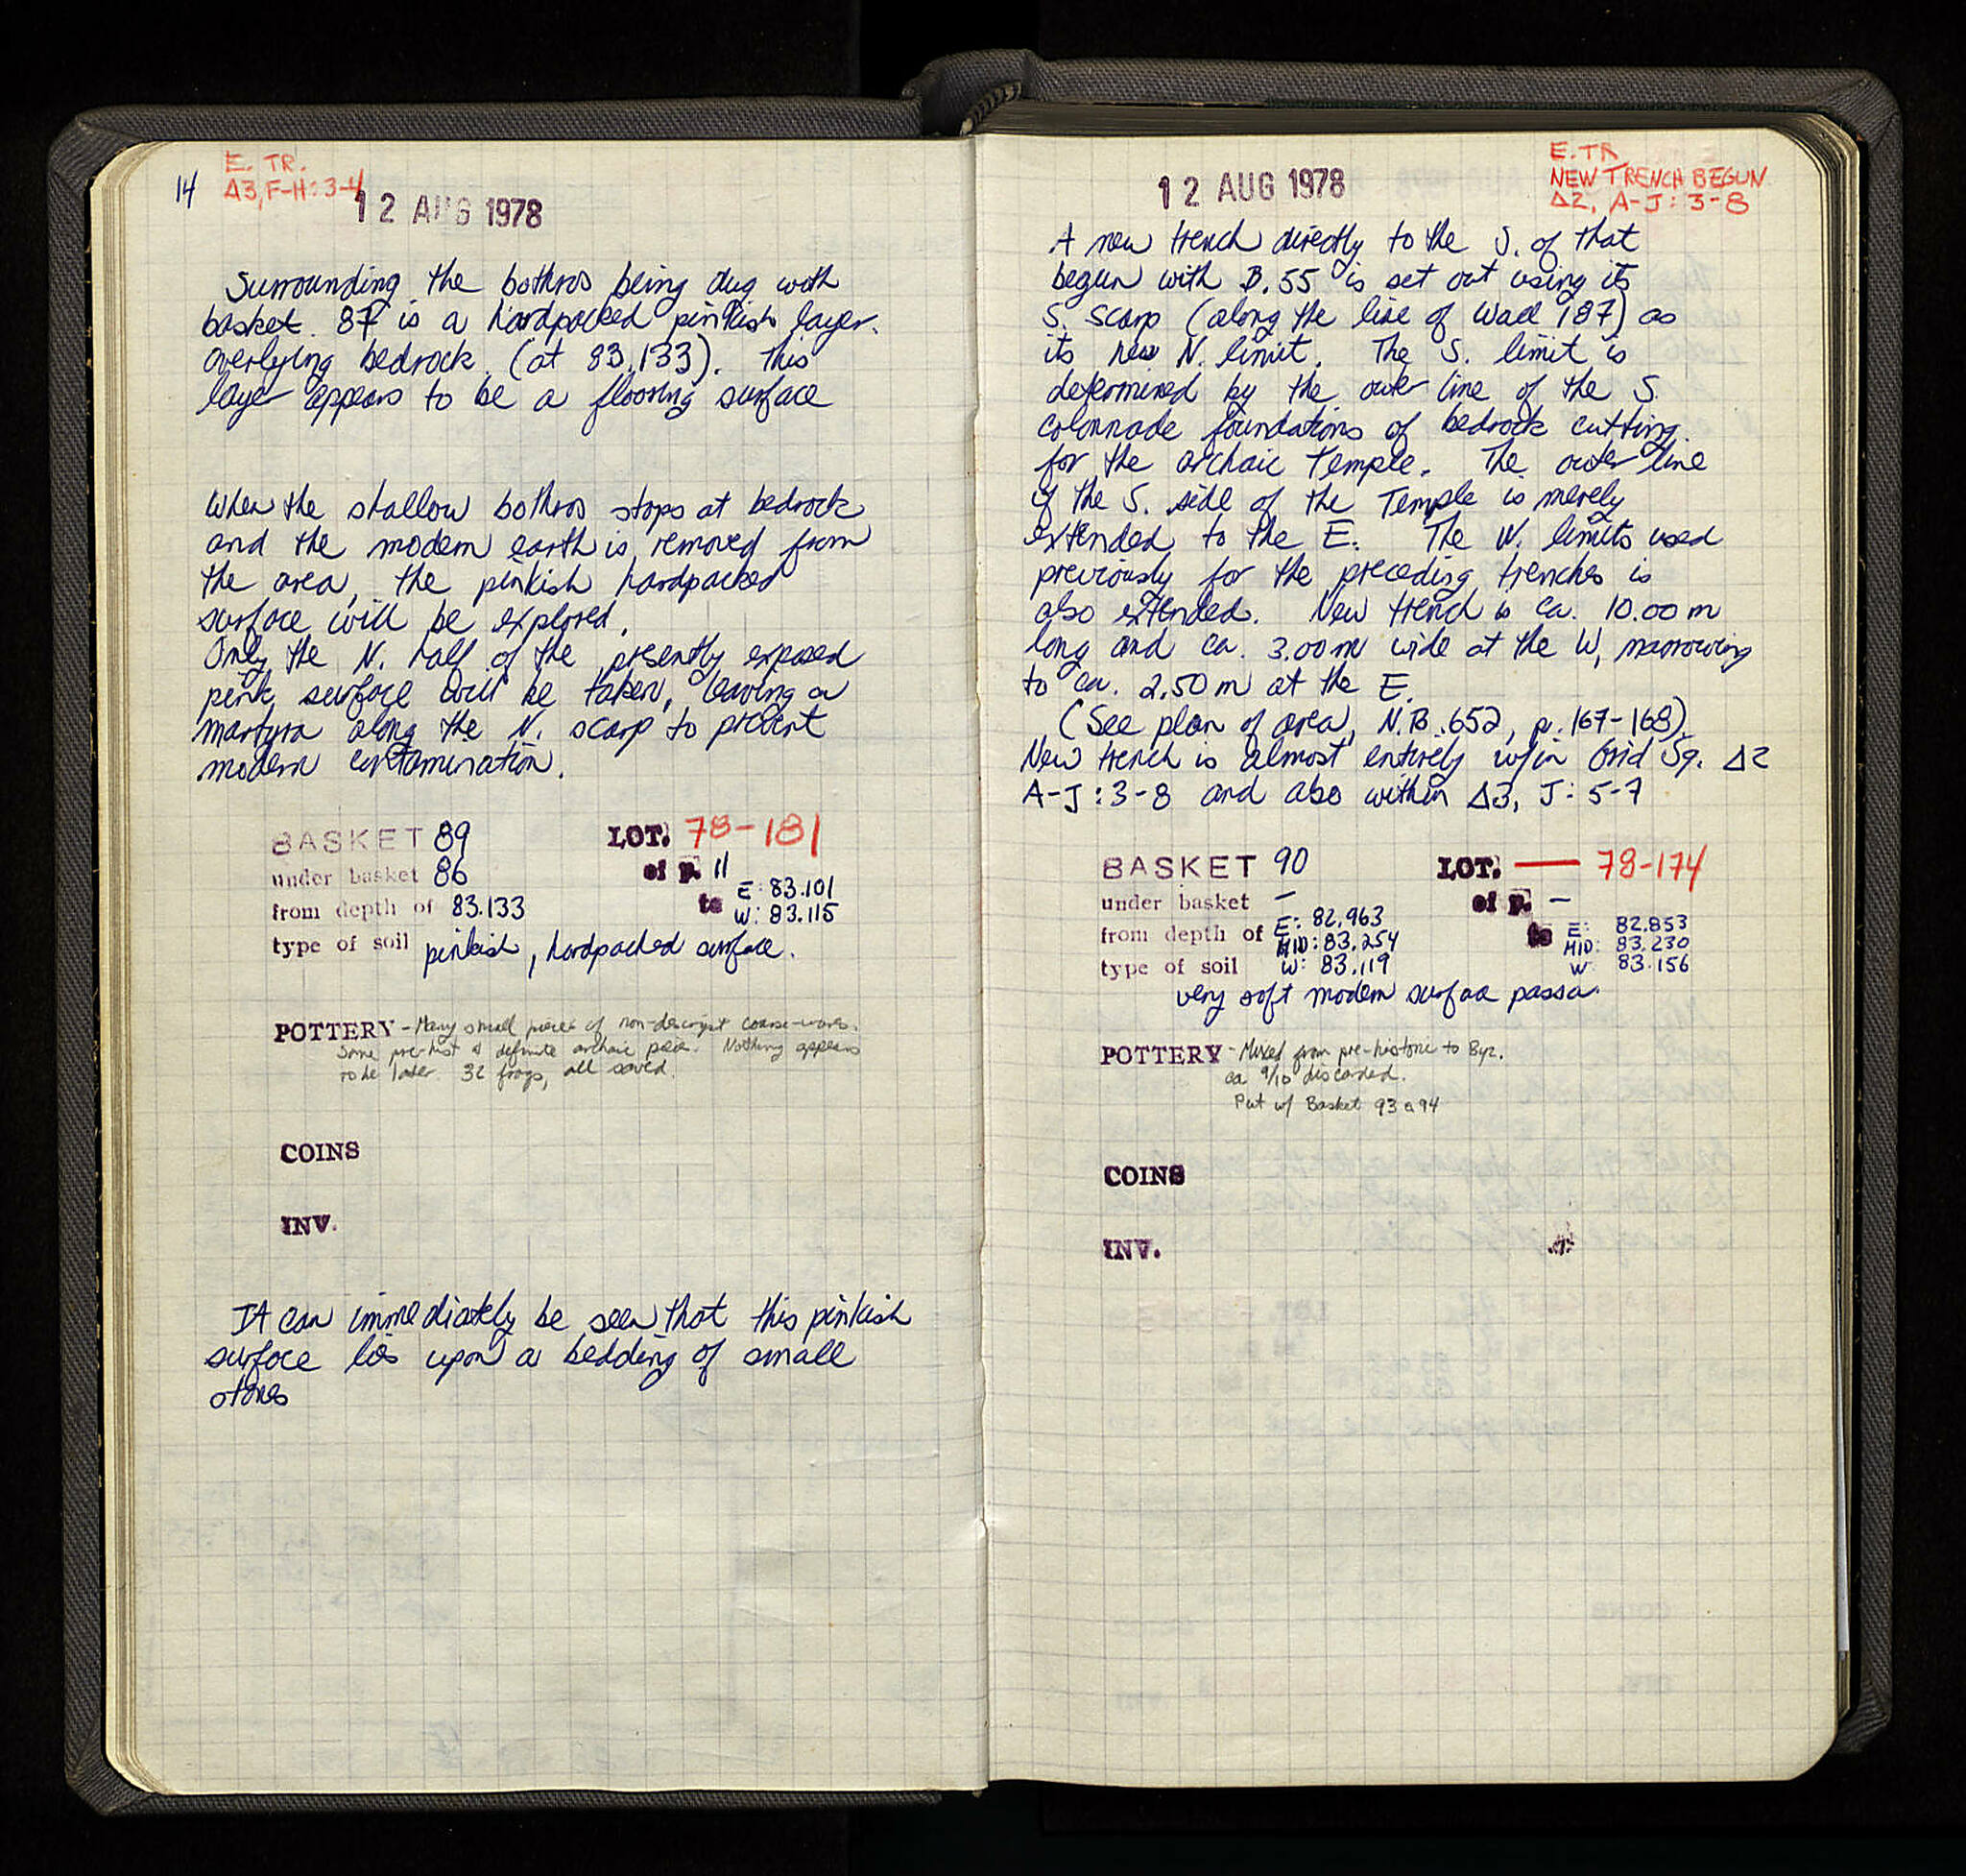 14
E. TR.
Δ3, F-H:3-4
12 AUG 1978
Surrounding the bothros being dug with
basket 87 is a hardpacked pinkish layer
overlying bedrock (at 83.133). This
layer appears to be a flooring surface
When the shallow bothros stops at bedrock
and the modern earth is removed from
the area, the pinkish hardpacked
surface will be explored.
Only the N. half of the presently exposed
pink surface will be taken, leaving a
martyra along the N. scarp to prevent
modern contamination.
BASKET 89 LOT. 78-181
under basket 86 of p. 11
from depth of 83.133 to E: 83.101
W: 83.115
type of soil pinkish, hardpacked surface.
POTTERY - Many small pieces of non-descript coarse-wares.
Some pre-hist & definite archaic pcs. Nothing appears
to be later. 32 frags, all saved.
COINS
INV.
It can immediately be seen that this pinkish
surface lies upon a bedding of small
stones
12 AUG 1978
E. TR
NEW TRENCH BEGUN
Δ2, A-J: 3-8
A new trench directly to the S. of that
begun with B. 55 is set out using its
S. scarp (along the line of Wall 187) as
its new N. limit. The S. limit is
determined by the outer line of the S.
colonnade foundations of bedrock cutting
for the archaic Temple. The outer line
of the S. side of the Temple is merely
extended to the E. The W. limits used
previously for the preceding trenches is
also extended. New trench is ca. 10.00 m
long and ca. 3.00 m wide at the W, narrowing
to ca. 2.50 m at the E.
(See plan of area, N.B. 652, p. 167-168).
New trench is almost entirely w/in Grid Sq. Δ2
A-J: 3-8 and also within Δ3, J: 5-7
BASKET 90 LOT. — 78-174
under basket — of p. —
from depth of E: 82.963 to E: 82.853
MID: 83.254 MID: 83.230
type of soil W: 83.119 W: 83.156
very soft modern surface passa.
POTTERY - Mixed from pre-historic to Byz.
ca 9/10 discarded.
Put w/ Basket 93 & 94
COINS
INV.